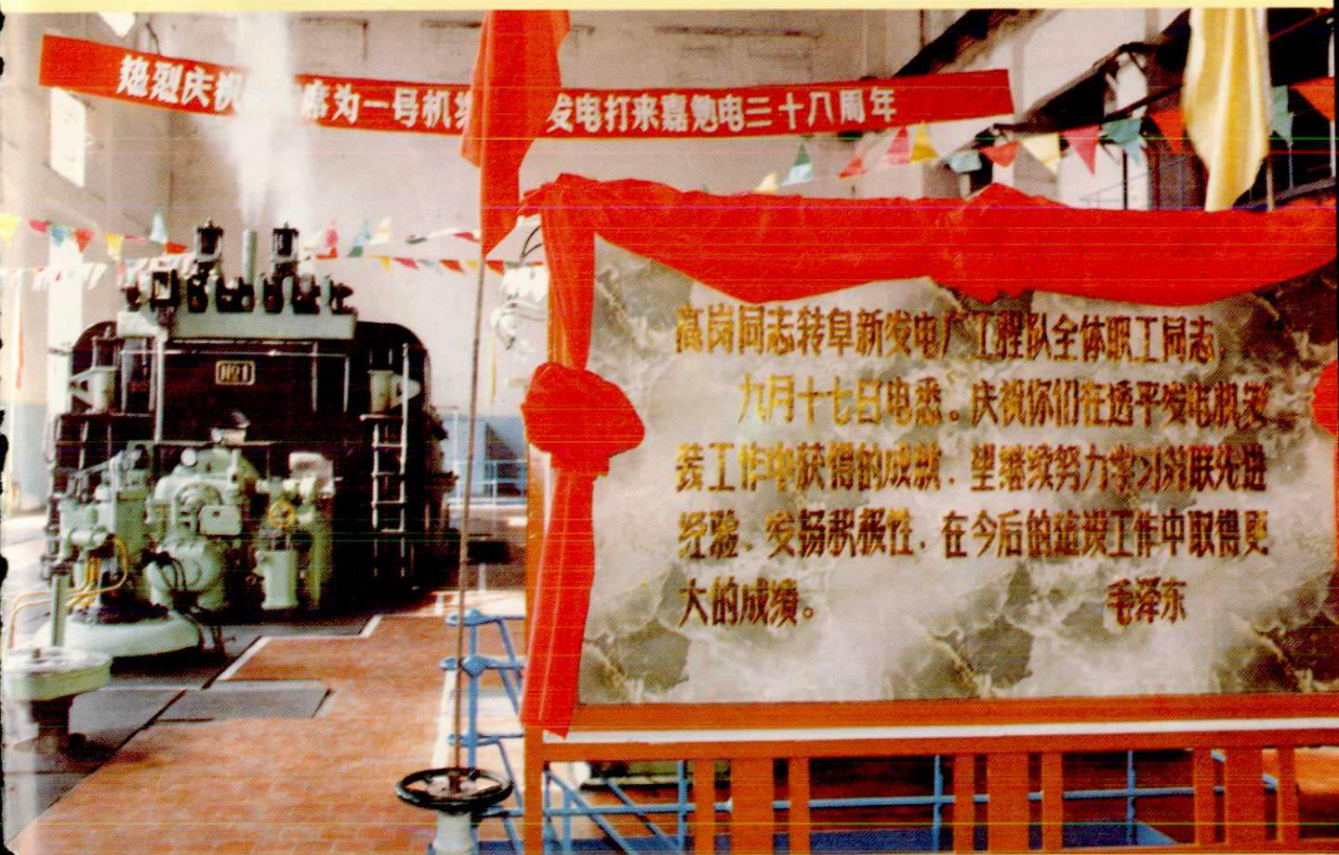 热烈庆祝 席为一号机 发电打来嘉勉电三十八周年
NO1
高岗同志转阜新发电厂工程队全体职工同志
九月十七日电悉。庆祝你们在透平发电机安
装工作中获得的成就.望继续努力学习苏联先进
经验、发扬积极性.在今后的建设工作中取得更
大的成绩。 毛泽东